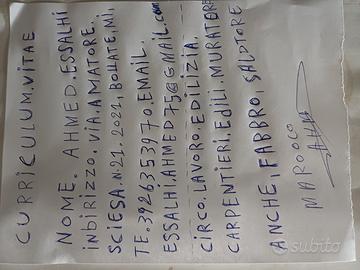 CURRICULUM.VITAE
NOME. AHMED.ESSALHI
INDIRIZZO.VIA.AMATORE.
SCIESA.N.21.2021,BOLLATE,MI,
TE.3926353970.EMAIL.
ESSALHI.AHMED75@GMAIL.com
CIRCO.LAVORO.EDILIZIA.
CARPENTIERI.EDILI.MURATORE
ANCHE,FABBRO,SALDTORE
MAROCCO
subito